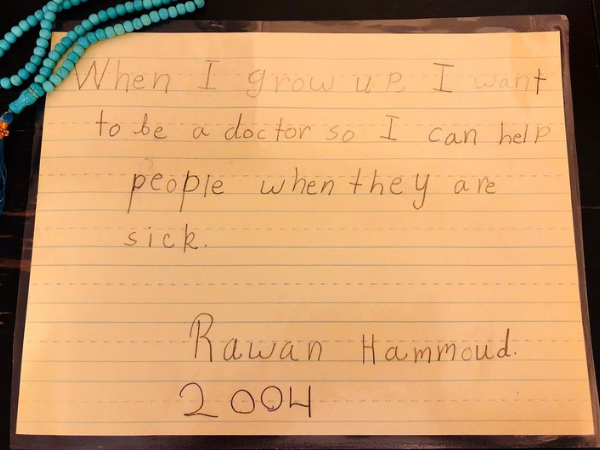 When I grow up I want
to be a doctor so I can help
people when they are
sick.
Rawan Hammoud.
2004